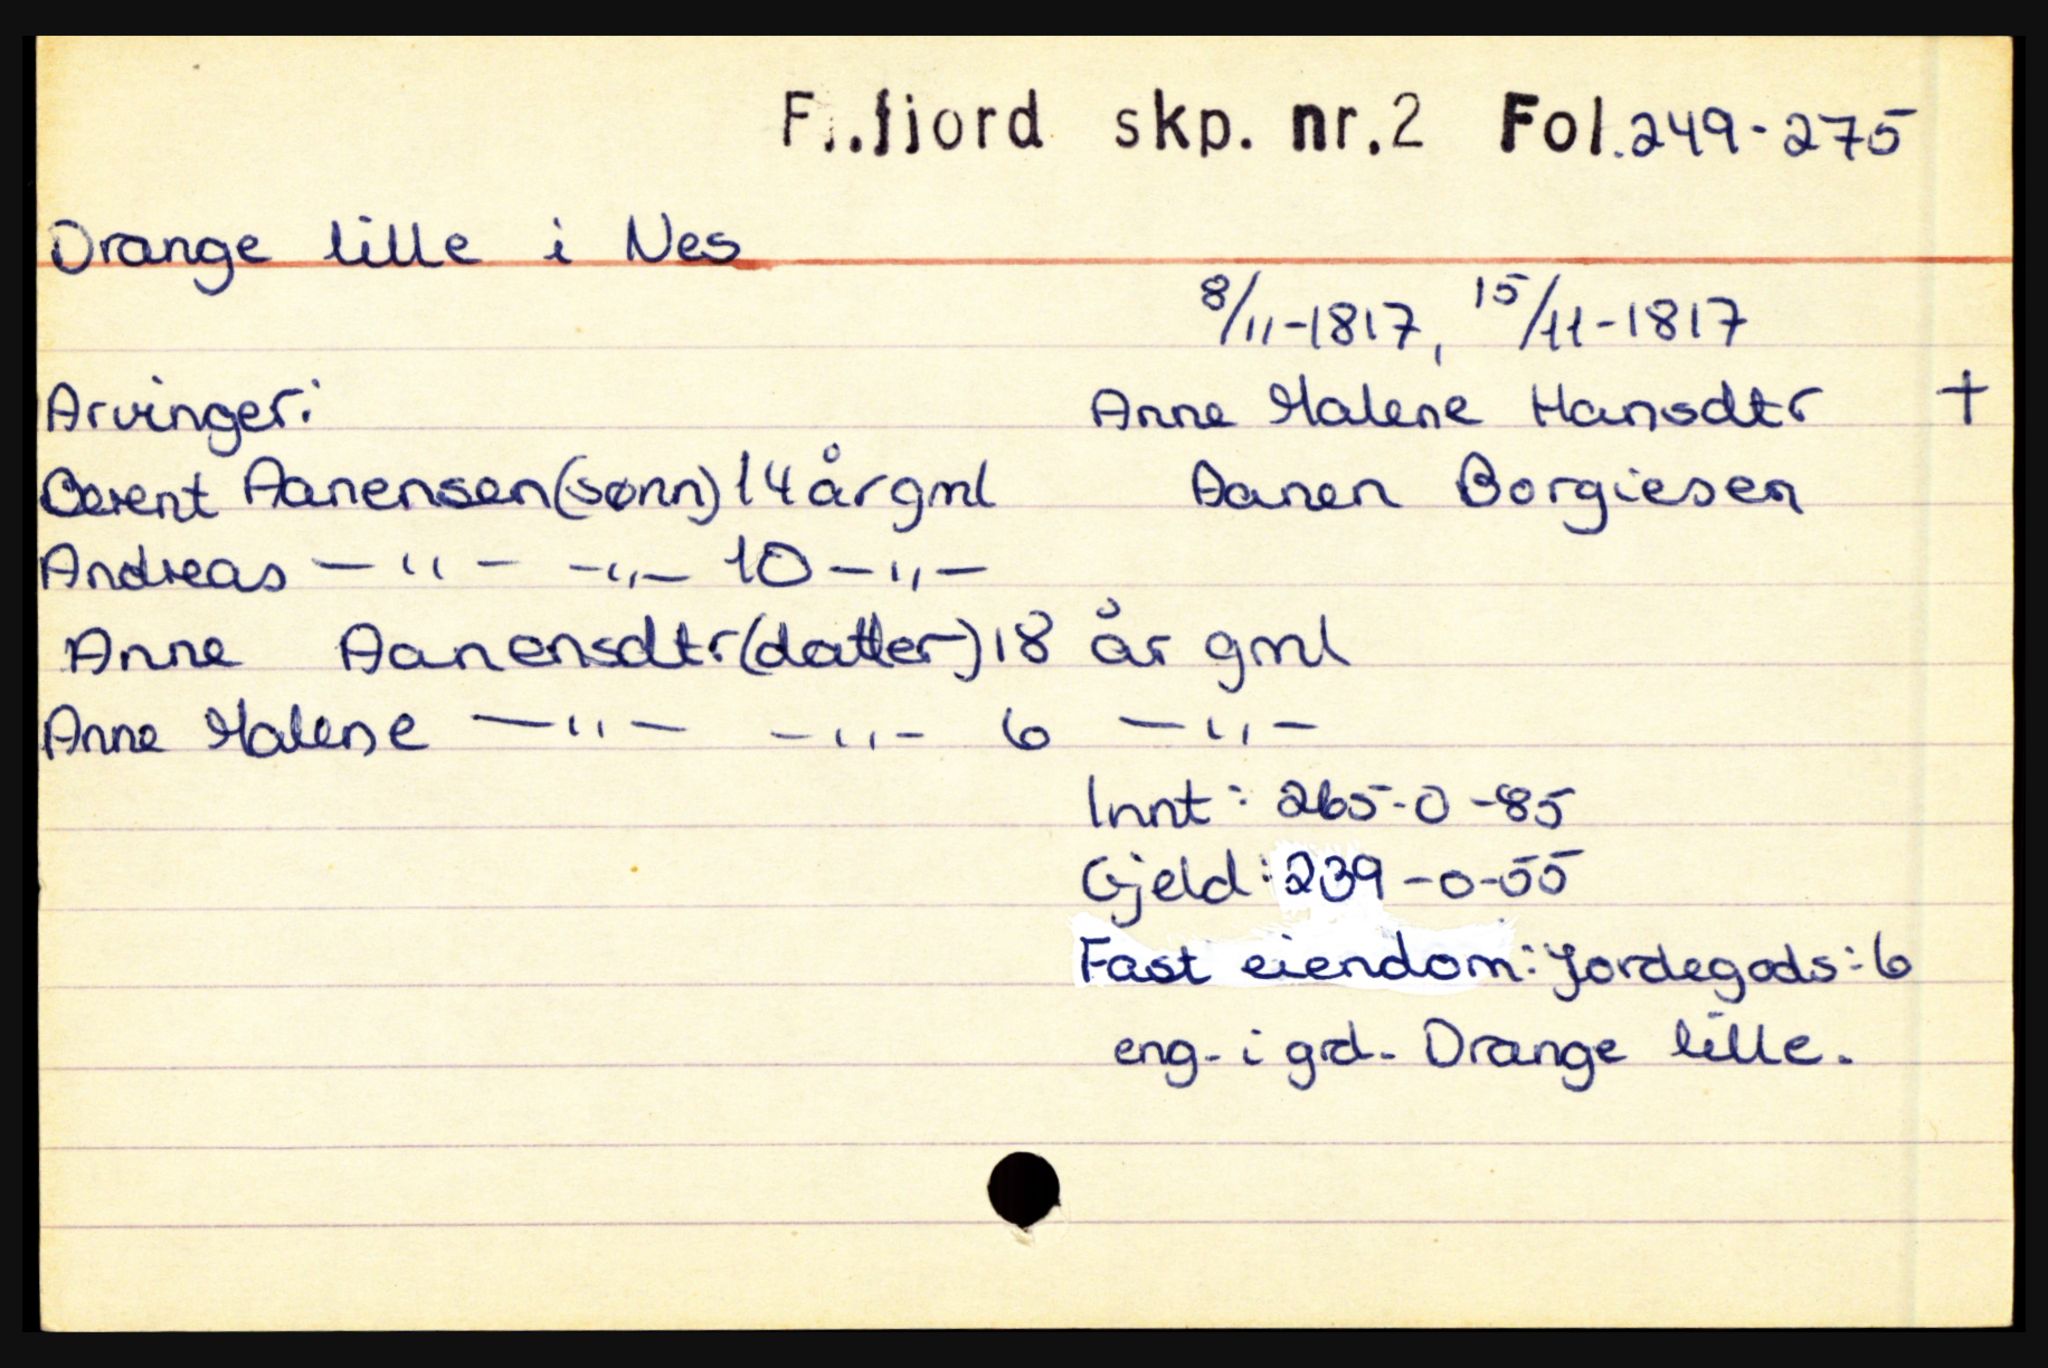 Fl.fjord skp. nr.2 Fol.249-275
Drange lille i Nes
8/11-1817, 15/11-1817
Arvinger: Anne Malene Hansdtr +
Berent Aanensen (sønn) 14 år gml Aanen Borgiesen
Andreas —"— —"— 10 —"—
Anne Aanensdtr (datter) 18 år gml
Anne Malene —"— —"— 6 —"—
Innt: 265-0-85
Gjeld: 239-0-55
Fast eiendom: Jordegods: 6
eng- i grd- Drange lille.